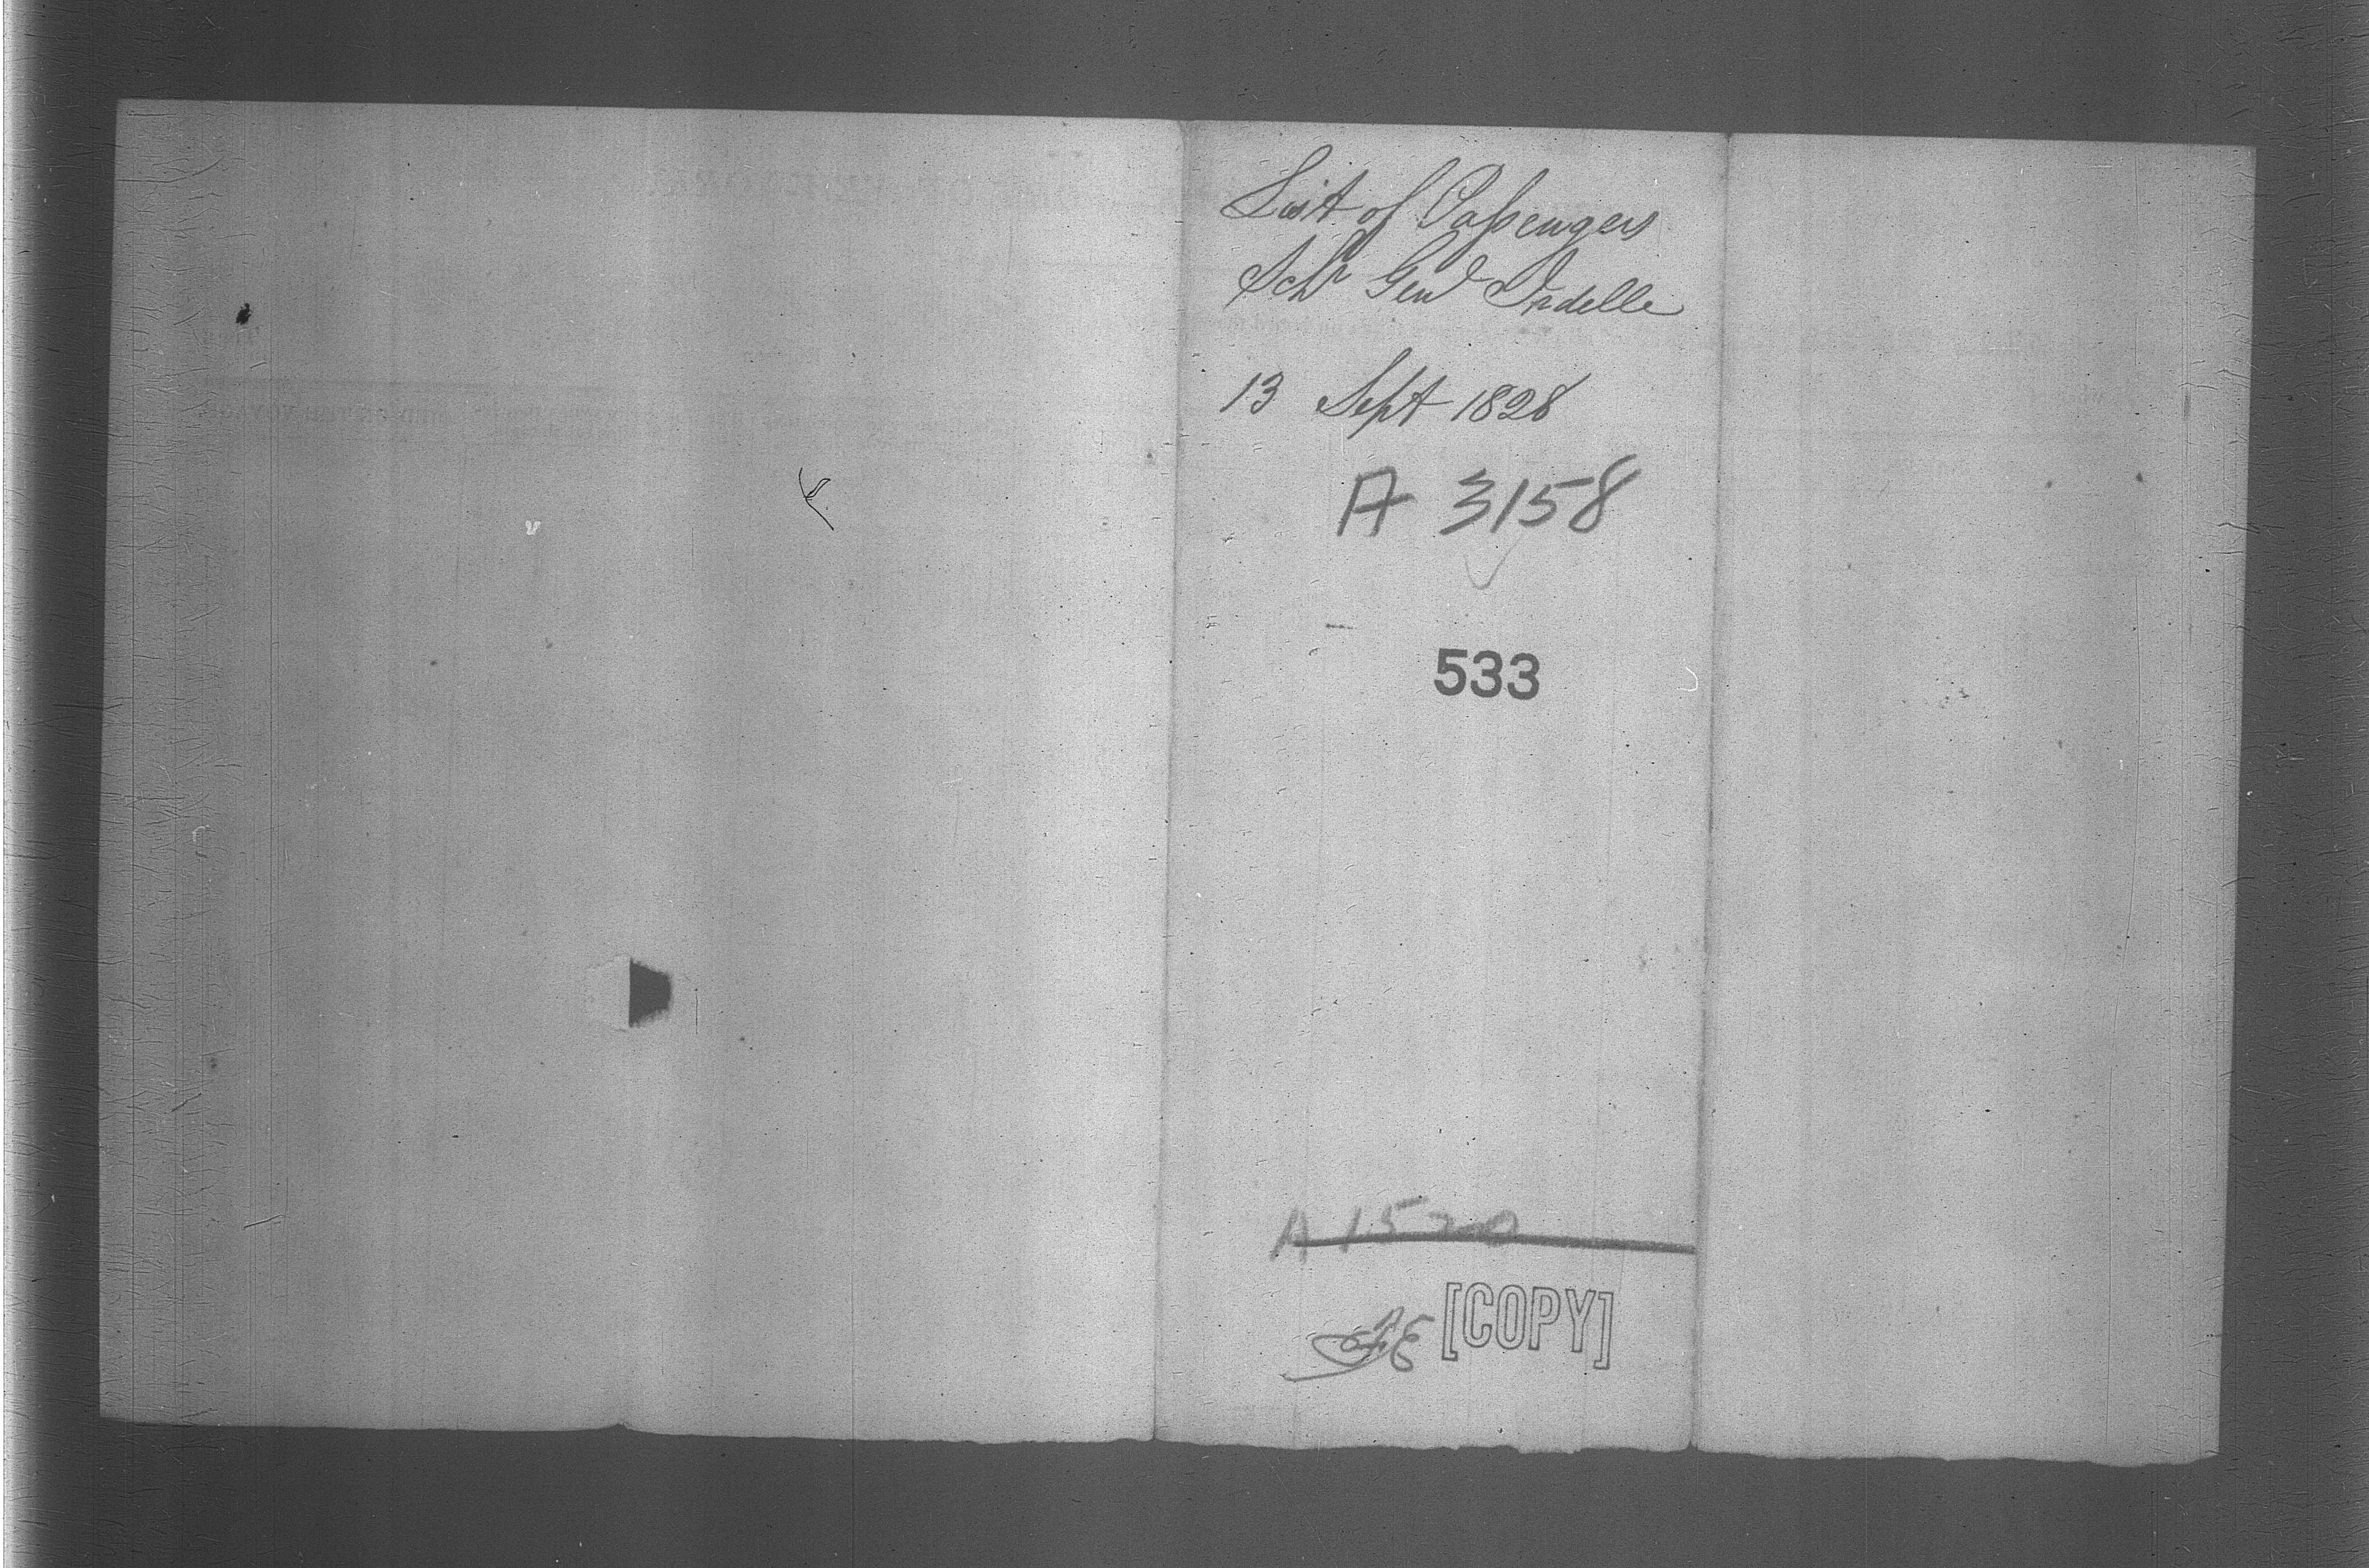 List of Passengers
Schr Genl Irdelle
13 Sept 1828
A 3158
533
A 1520
[COPY]